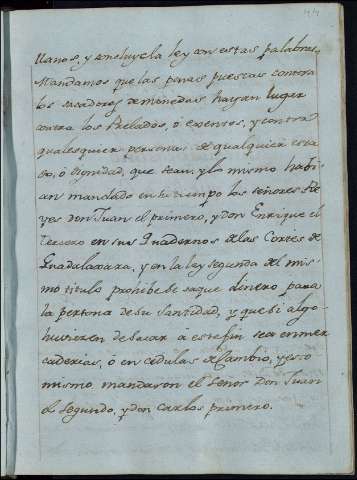 llanos, y concluye la ley con estas palabras,
Mandamos que las penas puestas contra
los sacadores de monedas hayan lugar
contra los Prelados, ó exentos, y contra
qualesquier persona de qualquier esta
do, ó dignidad, que sean, y lo mismo habi
an mandado en su tiempo los señores Re
yes don Juan el primero, y don Enrique el
tercero en sus Quadernos de las Cortes de
Guadalaxara, y en la ley segunda del mis
mo titulo prohibe se saque dinero para
la persona de su Santidad, y que si algo
huvieren de sacar á este fin sea en mer
caderias, ó en cedulas de Cambio, y eso
mismo mandaron el Señor Don Juan
el Segundo, y don Carlos primero.